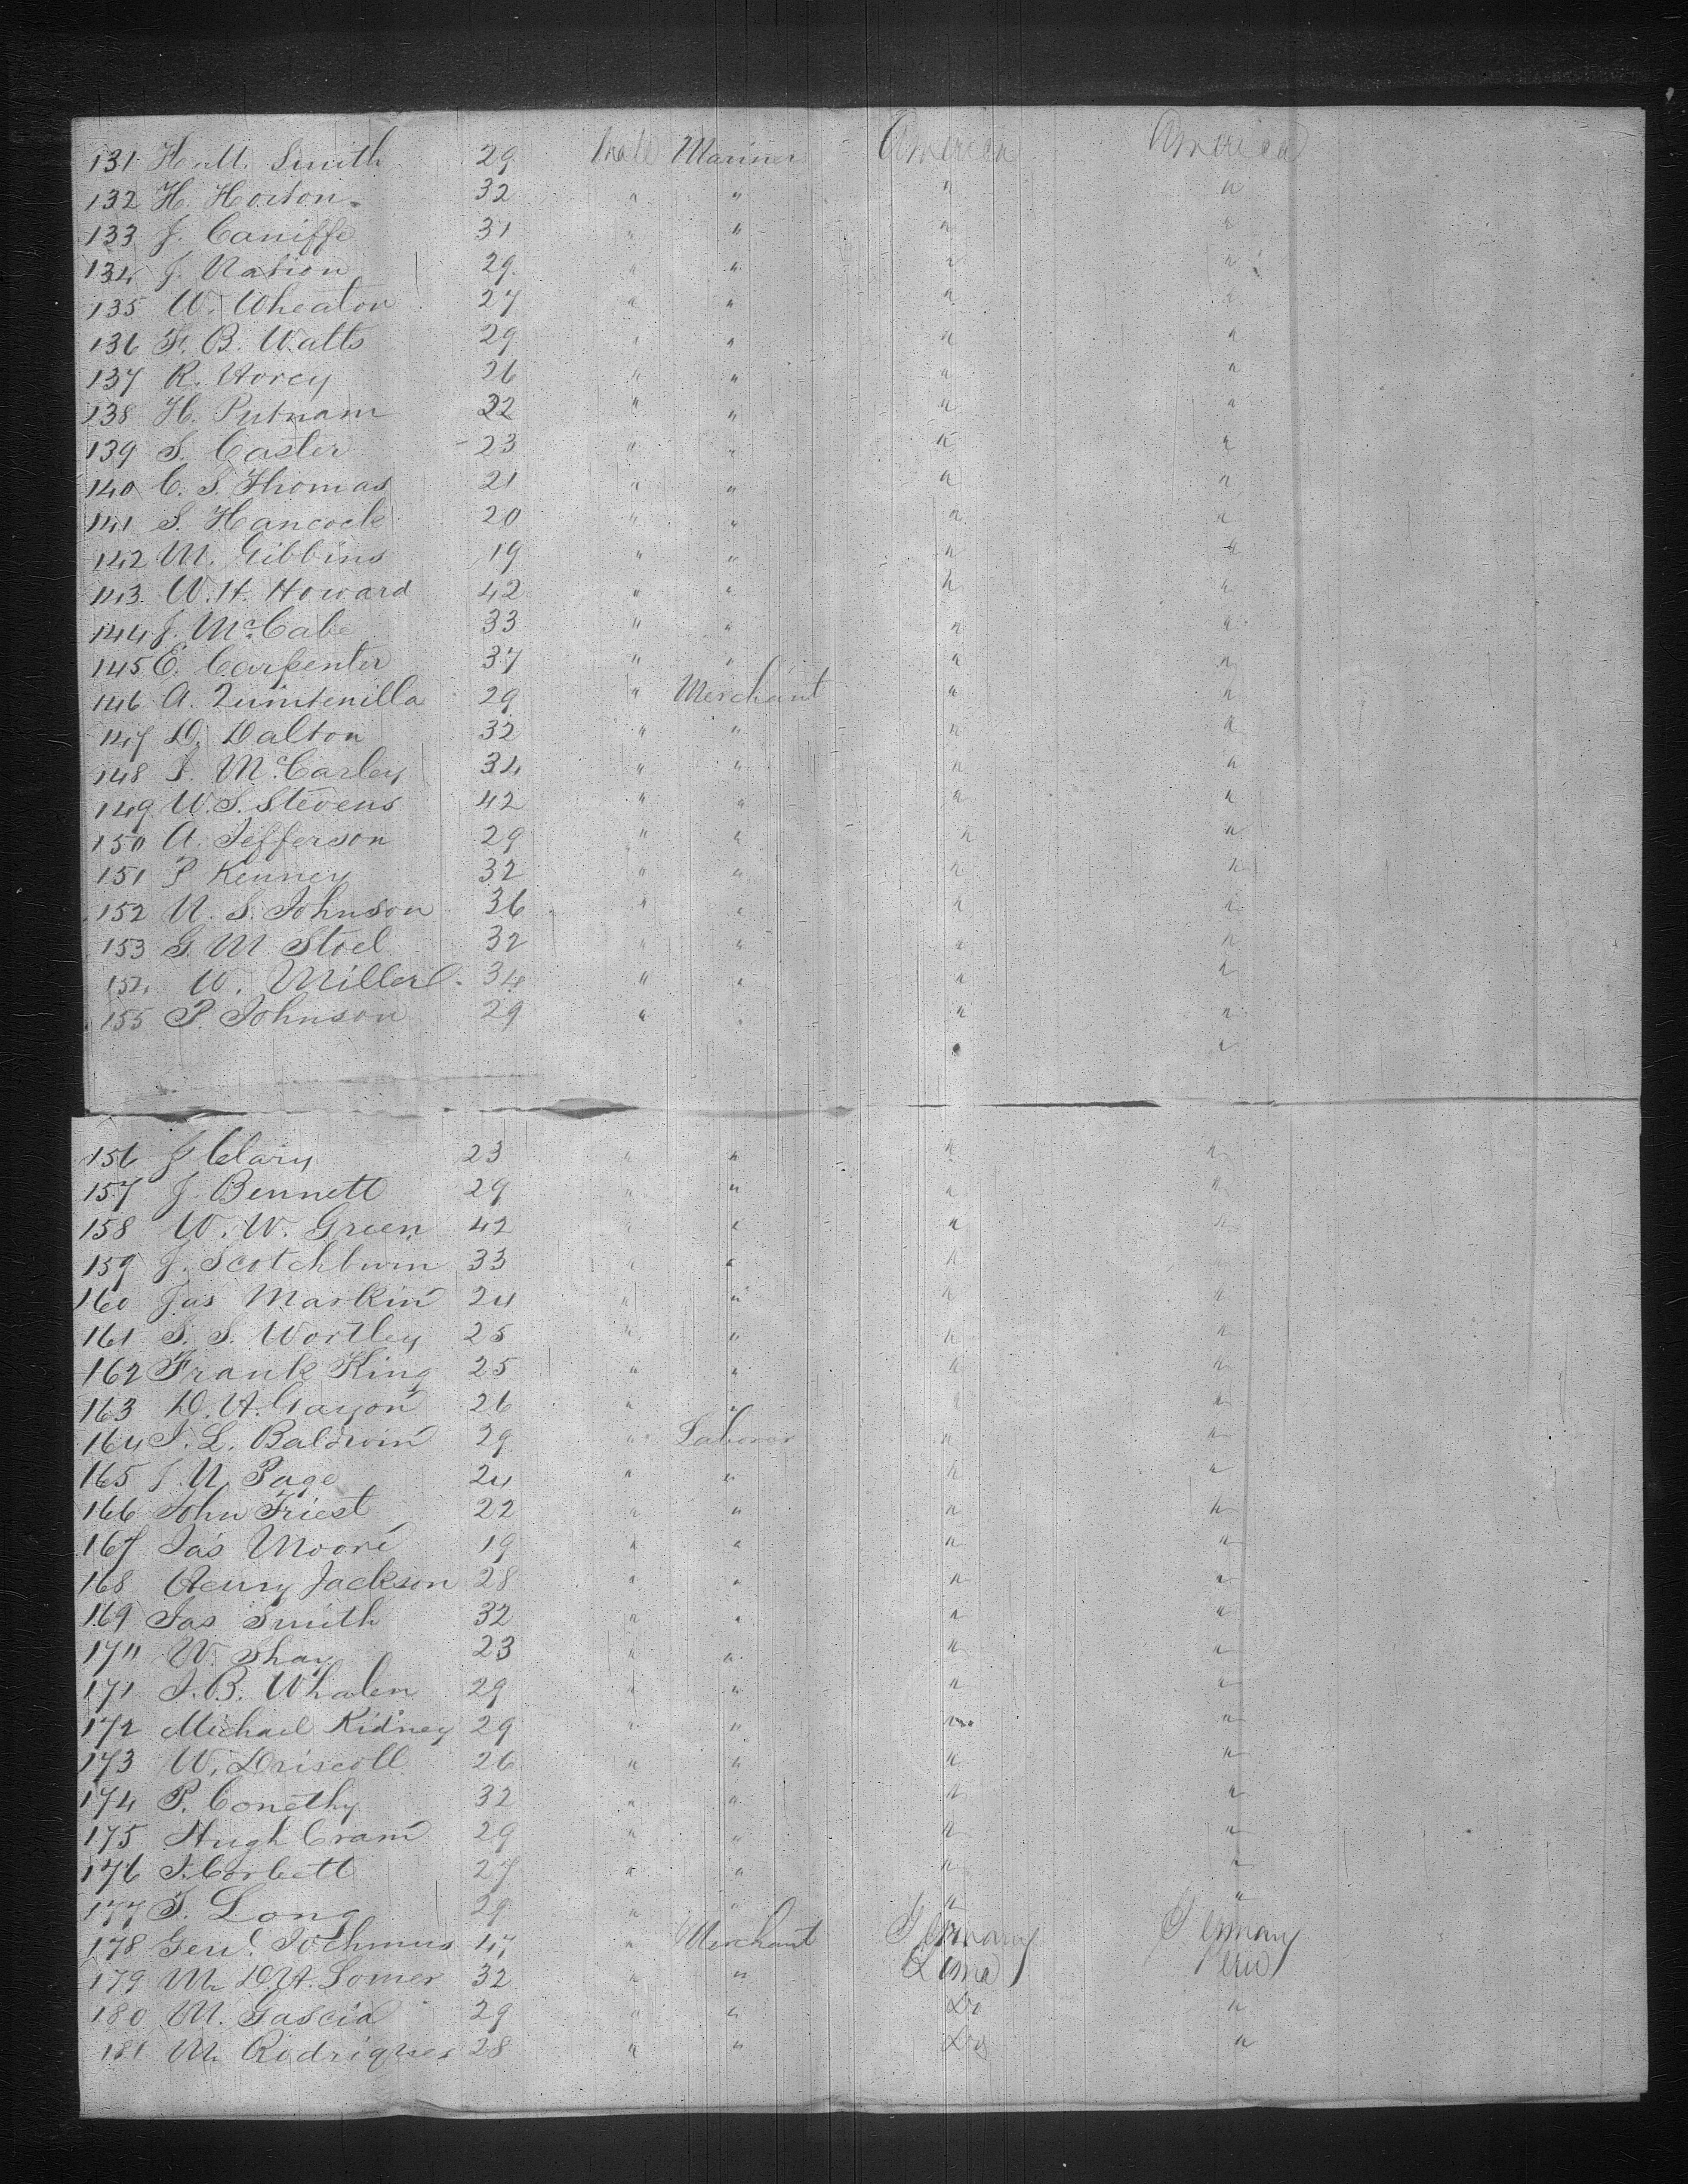 131 H. M. Smith 29 Male Mariner America America
132 H. Horton 32 " " " "
133 J. Caniffe 31 " " " "
134 J. Nation 29 " " " "
135 W. Wheaton 27 " " " "
136 F. B. Watts 29 " " " "
137 R. Horey 26 " " " "
138 H. Putnam 22 " " " "
139 S. Casler 23 " " " "
140 C. S. Thomas 21 " " " "
141 S. Hancock 20 " " " "
142 M. Gibbins 19 " " " "
143 W. H. Howard 42 " " " "
144 J. McCabe 33 " " " "
145 E. Carpenter 37 " " " "
146 A. Quintenilla 29 " Merchant " "
147 D. Dalton 32 " " " "
148 J. McCarley 34 " " " "
149 W. S. Stevens 42 " " " "
150 A. Jefferson 29 " " " "
151 P Kenney 32 " " " "
152 N. S. Johnson 36 " " " "
153 G. M Stoel 32 " " " "
154 W. Miller 34 " " " "
155 P. Johnson 29 " " " "
" "
156 J Clary 23 " " " "
157 J. Bennett 29 " " " "
158 W. W. Green 42 " " " "
159 J. Scotchburn 33 " " "
160 Jas Markin 24 " " " "
161 S. S. Wortley 25 " " " "
162 Frank King 25 " " " "
163 D. H. Gayon 26 " " " "
164 J. L. Baldwin 29 " Laborer " "
165 J. N. Page 24 " " " "
166 John Friest 22 " " " "
167 Jas Moore 19 " " " "
168 Henry Jackson 28 " " " "
169 Jas Smith 32 " " " "
170 W. Shay 23 " " " "
171 J. B. Whalen 29 " " " "
172 Michael Kidney 29 " " " "
173 W. Driscoll 26 " " " "
174 P. Conethy 32 " " " "
175 Hugh Cram 29 " " " "
176 J. Corbett 27 " " " "
177 S. Long 29 " " " "
178 Genl. Jochmus 47 " Merchant Germany Germany
179 M D H. Somer 32 " " Lima Peru
180 M. Gascia 29 " " Do "
181 M Rodrigues 28 " " Do "